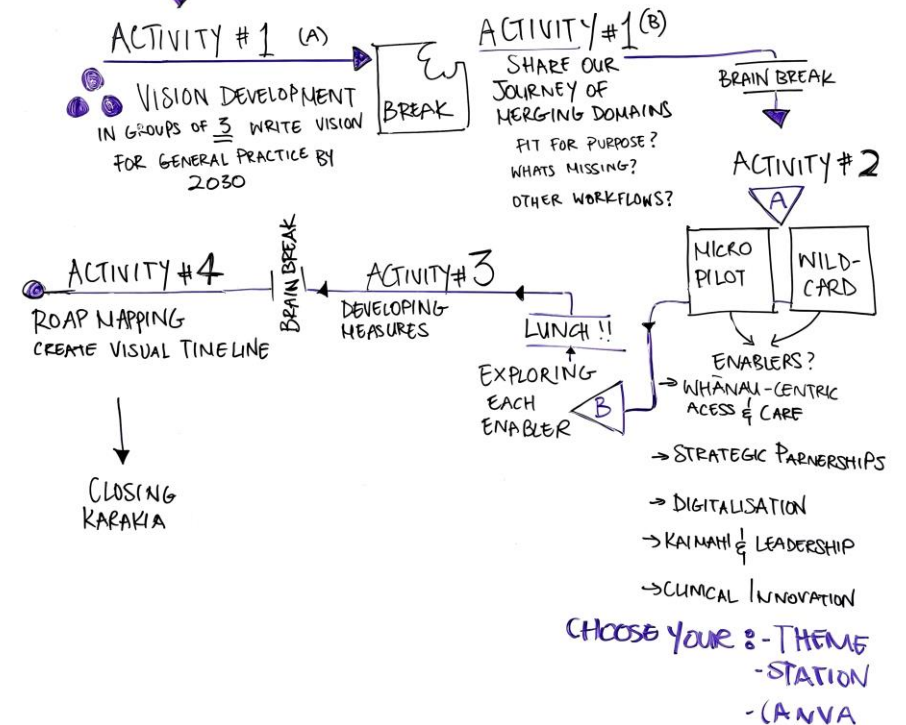 ACTIVITY #1 (A)
VISION DEVELOPMENT
IN GROUPS OF 3 WRITE VISION
FOR GENERAL PRACTICE BY
2030
BREAK
ACTIVITY #1 (B)
SHARE OUR
JOURNEY OF
MERGING DOMAINS
FIT FOR PURPOSE?
WHATS MISSING?
OTHER WORKFLOWS?
BRAIN BREAK
ACTIVITY #2
A
MICRO
PILOT
WILD-
CARD
ENABLERS?
→ WHĀNAU-CENTRIC
ACESS & CARE
→ STRATEGIC PARNERSHIPS
→ DIGITALISATION
→ KAIMAHI & LEADERSHIP
→ CLINICAL INNOVATION
CHOOSE YOUR :- THEME
- STATION
- CANVA
B
EXPLORING
EACH
ENABLER
LUNCH !!
ACTIVITY #3
DEVELOPING
MEASURES
BRAIN BREAK
ACTIVITY #4
ROAP MAPPING
CREATE VISUAL TIMELINE
CLOSING
KARAKIA